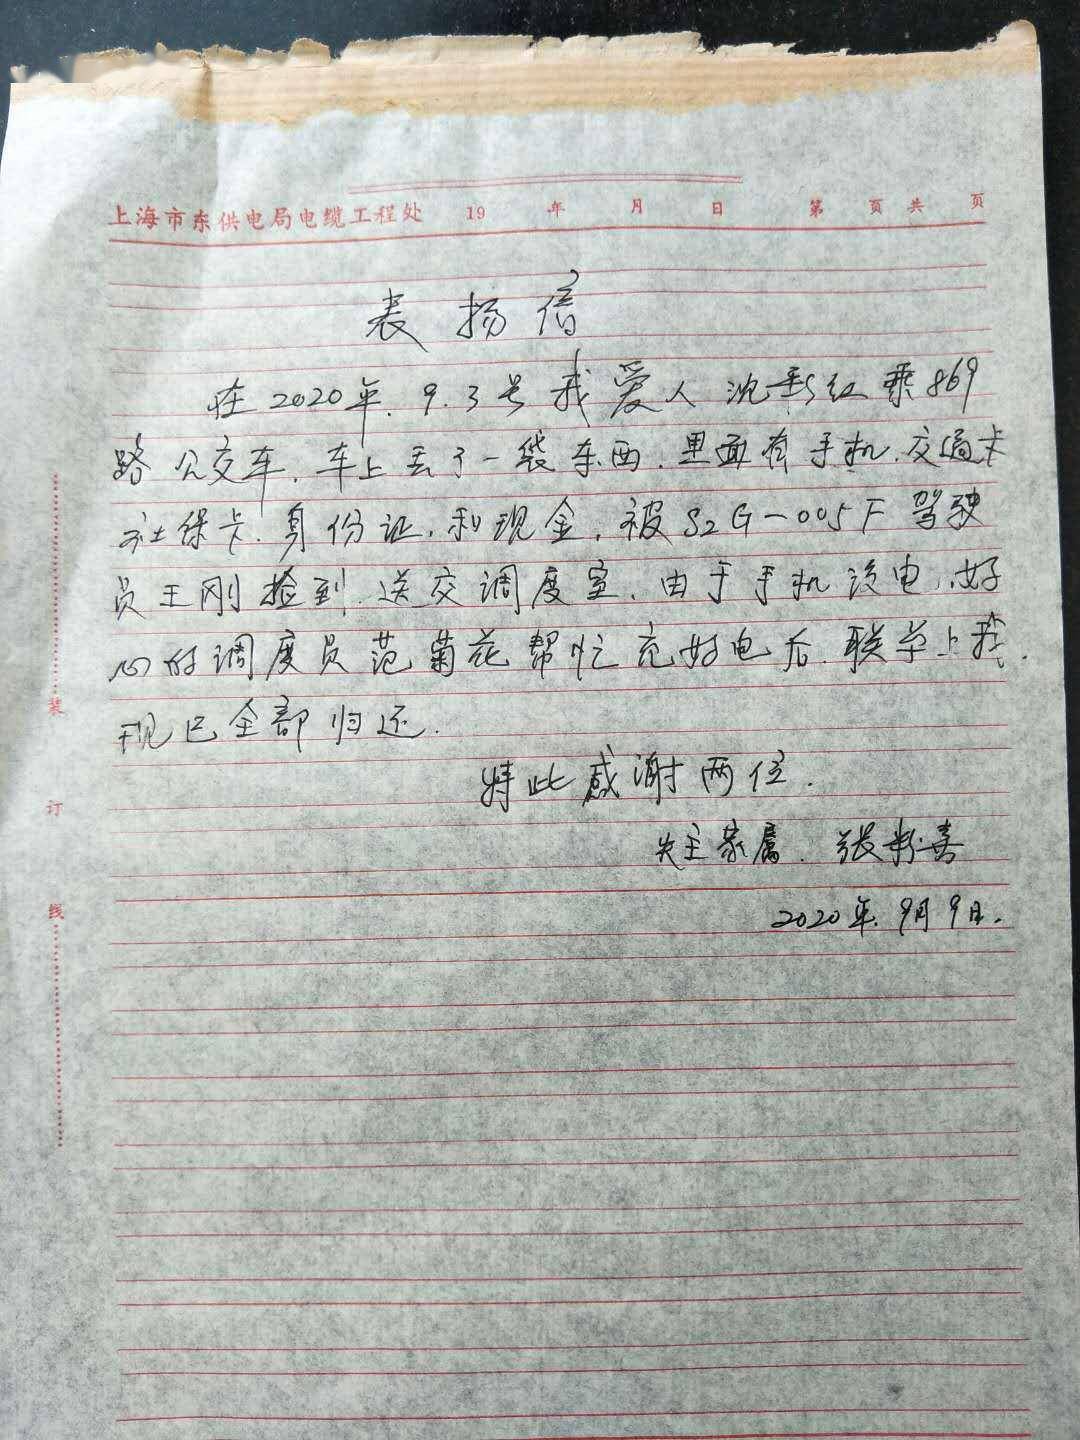 上海市东供电局电缆工程处 19 年 月 日 第 页 共 页
表扬信
在2020年.9.3号我爱人沈彩红乘869
路公交车,车上丢了一袋东西.里面有手机.交通卡
社保卡.身份证.和现金,被S2G-005F驾驶
员王刚捡到.送交调度室.由于手机没电,好
心的调度员范菊花帮忙充好电后.联络上我.
现已全部归还.
特此感谢两位.
失主家属.张彩喜
2020年.9月9日.
装
订
线